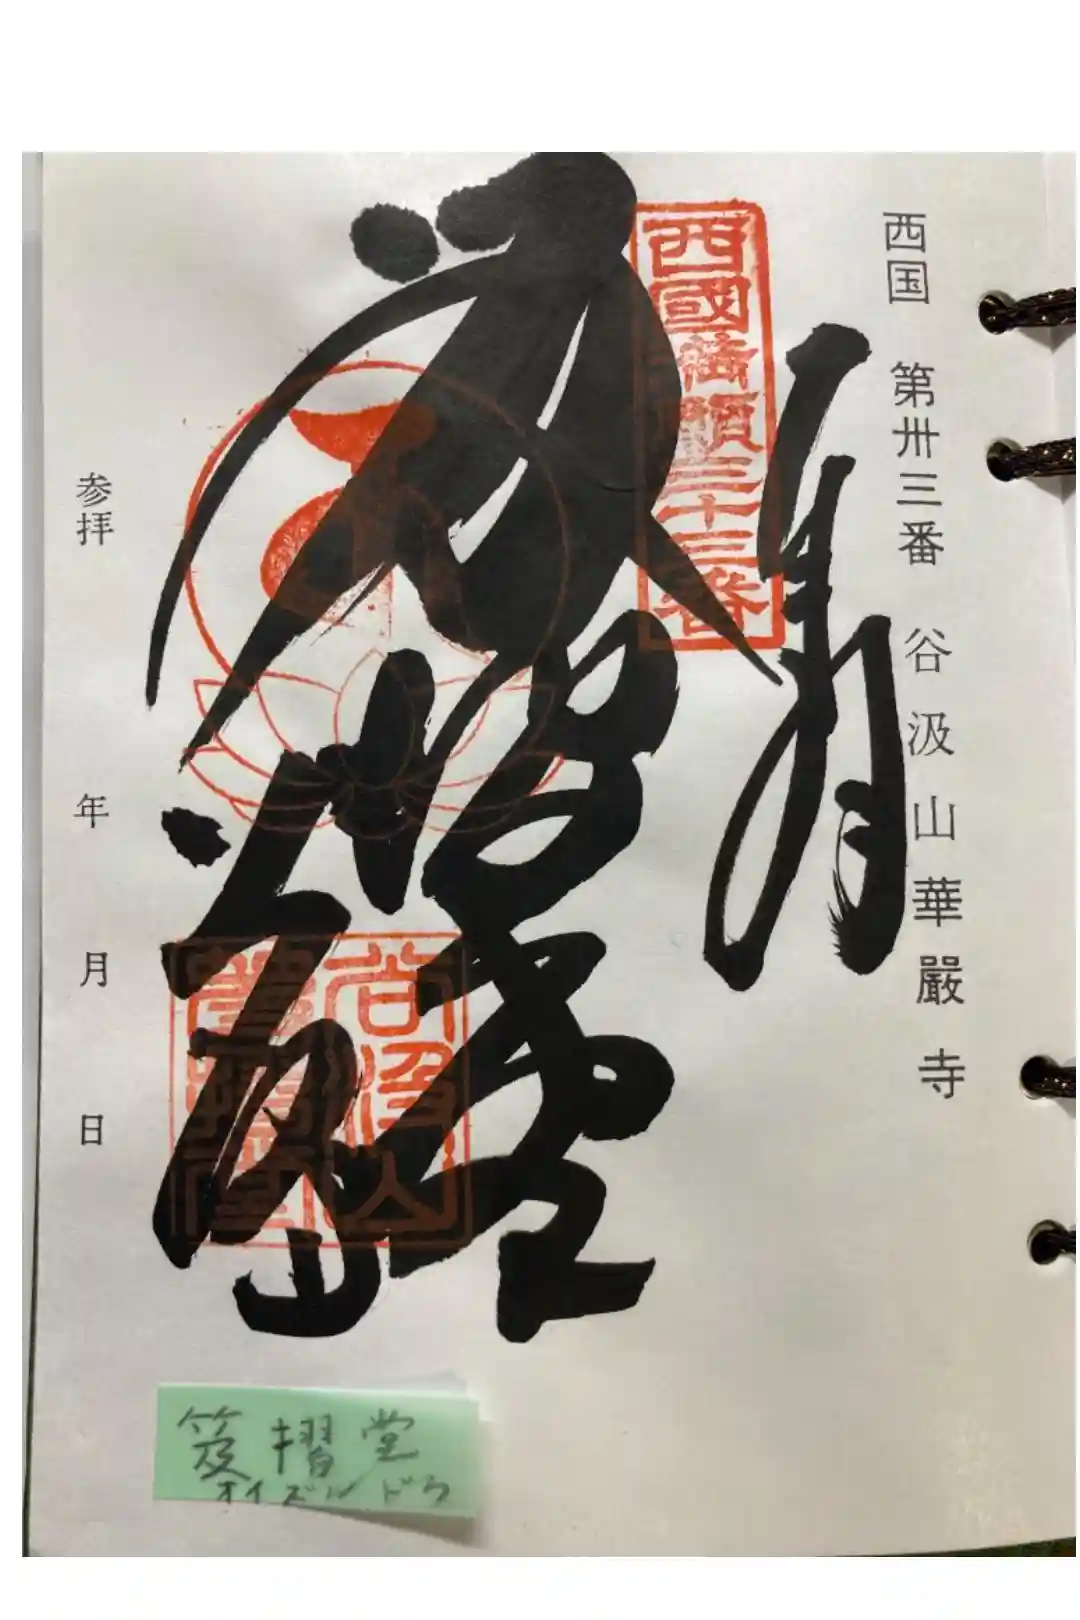 西国 第卅三番 谷汲山華嚴寺
西國滿願三十三番
笈摺堂
谷汲山
参拝 年 月 日
笈摺堂
オイズルドウ